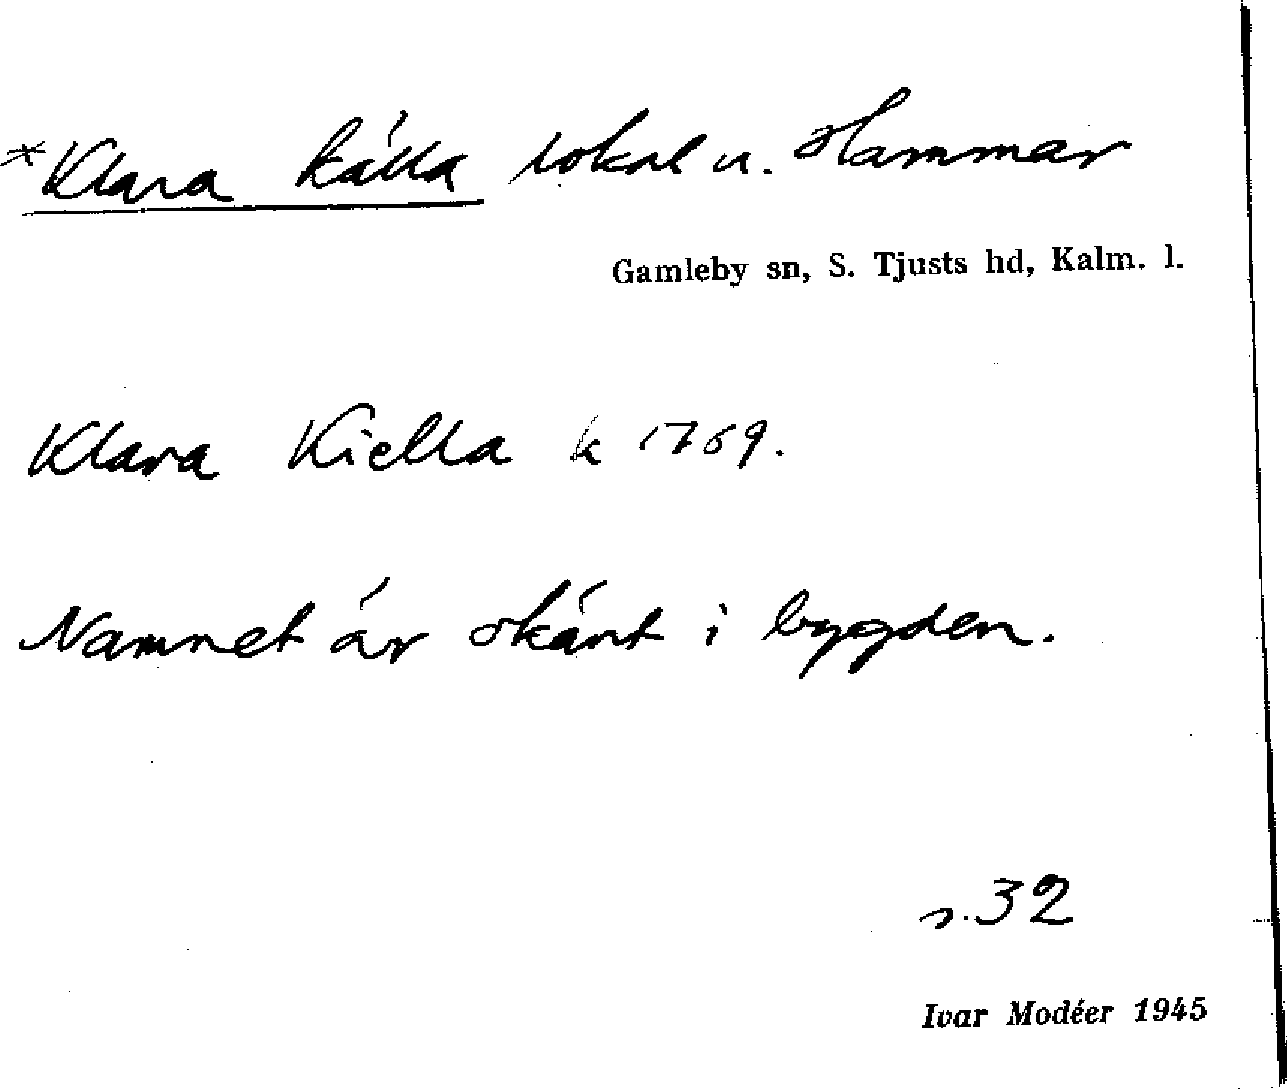 *Klara källa lokal u. Hammar
Gamleby sn, S. Tjusts hd, Kalm. l.
Klara Kiella k 1769.
Namnet är okänt i bygden.
s. 32
Ivar Modéer 1945